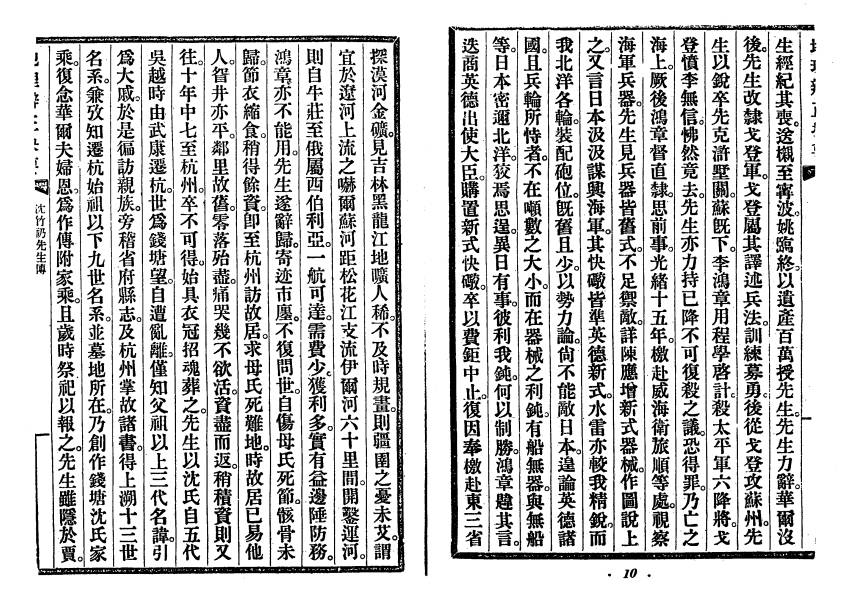 生經紀其喪。送櫬至寧波。姚終以遺產百萬授先生。先生力辭。華爾沒
後。先生改隸戈登軍。戈登屬其譯述兵法。訓練募勇。後從戈登攻蘇州。先
生以銳卒先克滸墅關。蘇旣下。李鴻章用程學啓計。殺太平軍六降將。戈
登憤李無信。怫然竟去。先生亦力持已降不可復殺之議。恐得罪。乃亡之
海上。厥後鴻章督直隸。思前事。光緒十五年。檄赴威海衛旅順等處。視察
海軍兵器。先生見兵器皆舊式。不足禦敵。詳陳應增新式器械。作圖說上
之。又言日本汲汲謀興海軍。其快礮皆準英德新式。水雷亦較我精銳。而
我北洋各輪裝配砲位。旣舊且少。以勢力論。尙不能敵日本。遑論英德諸
國。且兵輪所恃者。不在噸數之大小。而在器械之利鈍。有船無器。與無船
等。日本密邇北洋。狡焉思逞。異日有事。彼利我鈍。何以制勝。鴻章韙其言。
迭商英德出使大臣。購置新式快礮。卒以費鉅中止。復因奉檄赴東三省
· 10 ·
探漠河金礦。見吉林黑龍江地曠人稀。不及時規畫。則疆圉之憂未艾。謂
宜於遼河上流之嚇爾蘇河距松花江支流伊爾河六十里間。開鑿運河。
則自牛莊至俄屬西伯利亞。一航可達。需費少。獲利多。實有益邊陲防務。
鴻章亦不能用。先生遂辭歸。寄迹市廛。不復問世。自傷母氏死節。骸骨未
歸。節衣縮食。稍得餘資。卽至杭州訪故居。求母氏死難地。時故居已易他
人。眢井亦平。鄰里故舊。零落殆盡。痛哭幾不欲活。資盡而返。稍積資則又
往。十年中七至杭州。卒不可得。始具衣冠招魂葬之。先生以沈氏自五代
吳越時由武康遷杭。世爲錢塘望。自遭亂離。僅知父祖以上三代名諱。引
爲大戚。於是徧訪親族。旁稽省府縣志及杭州掌故諸書。得上溯十三世
名系。兼攷知遷杭始祖以下九世名系。並墓地所在。乃創作錢塘沈氏家
乘。復念華爾夫婦恩。爲作傳附家乘。且歲時祭祀以報之。先生雖隱於賈。
沈竹礽先生傳